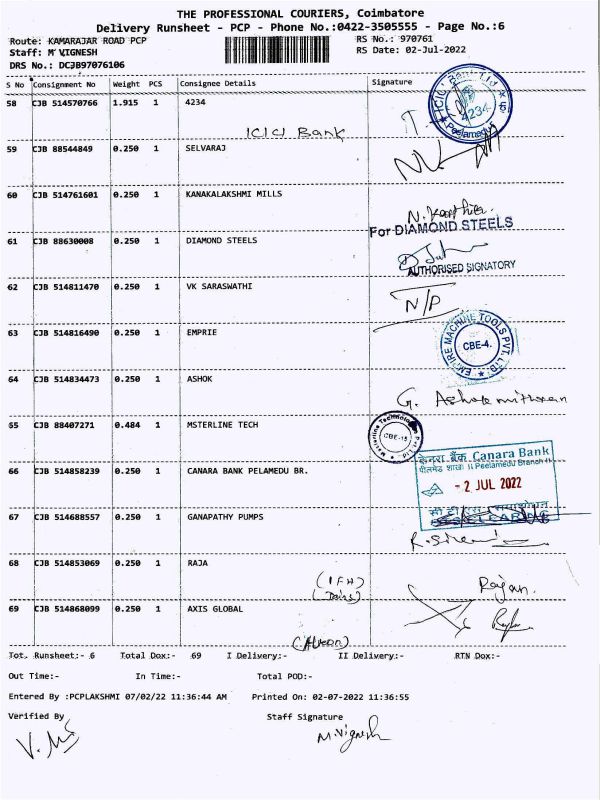 THE PROFESSIONAL COURIERS, Coimbatore
Delivery Runsheet - PCP - Phone No.:0422-3505555 - Page No.:6
Route: KAMARAJAR ROAD PCP RS No.: 970761
Staff: M VIGNESH RS Date: 02-Jul-2022
DRS No.: DCJB97076106
S No Consignment No Weight PCS Consignee Details Signature
58 CJB 514570766 1.915 1 4234
ICICI Bank
ICICI Bank Ltd 4234 Peelamedu
59 CJB 88544849 0.250 1 SELVARAJ
60 CJB 514761601 0.250 1 KANAKALAKSHMI MILLS
For DIAMOND STEELS
61 CJB 88630008 0.250 1 DIAMOND STEELS
AUTHORISED SIGNATORY
62 CJB 514811470 0.250 1 VK SARASWATHI
N/P
63 CJB 514816490 0.250 1 EMPRIE
EMPIRE MACHINE TOOLS PVT. LTD CBE-4.
64 CJB 514834473 0.250 1 ASHOK
65 CJB 88407271 0.484 1 MSTERLINE TECH
CBE-15
66 CJB 514858239 0.250 1 CANARA BANK PELAMEDU BR.
केनरा बैंक Canara Bank
पीलमेडु शाखा Peelamedu Branch
- 2 JUL 2022
67 CJB 514688557 0.250 1 GANAPATHY PUMPS
68 CJB 514853069 0.250 1 RAJA
Rajan.
69 CJB 514868099 0.250 1 AXIS GLOBAL
Tot. Runsheet:- 6 Total Dox:- 69 I Delivery:- II Delivery:- RTN Dox:-
Out Time:- In Time:- Total POD:-
Entered By :PCPLAKSHMI 07/02/22 11:36:44 AM Printed On: 02-07-2022 11:36:55
Verified By Staff Signature
M.Vignesh